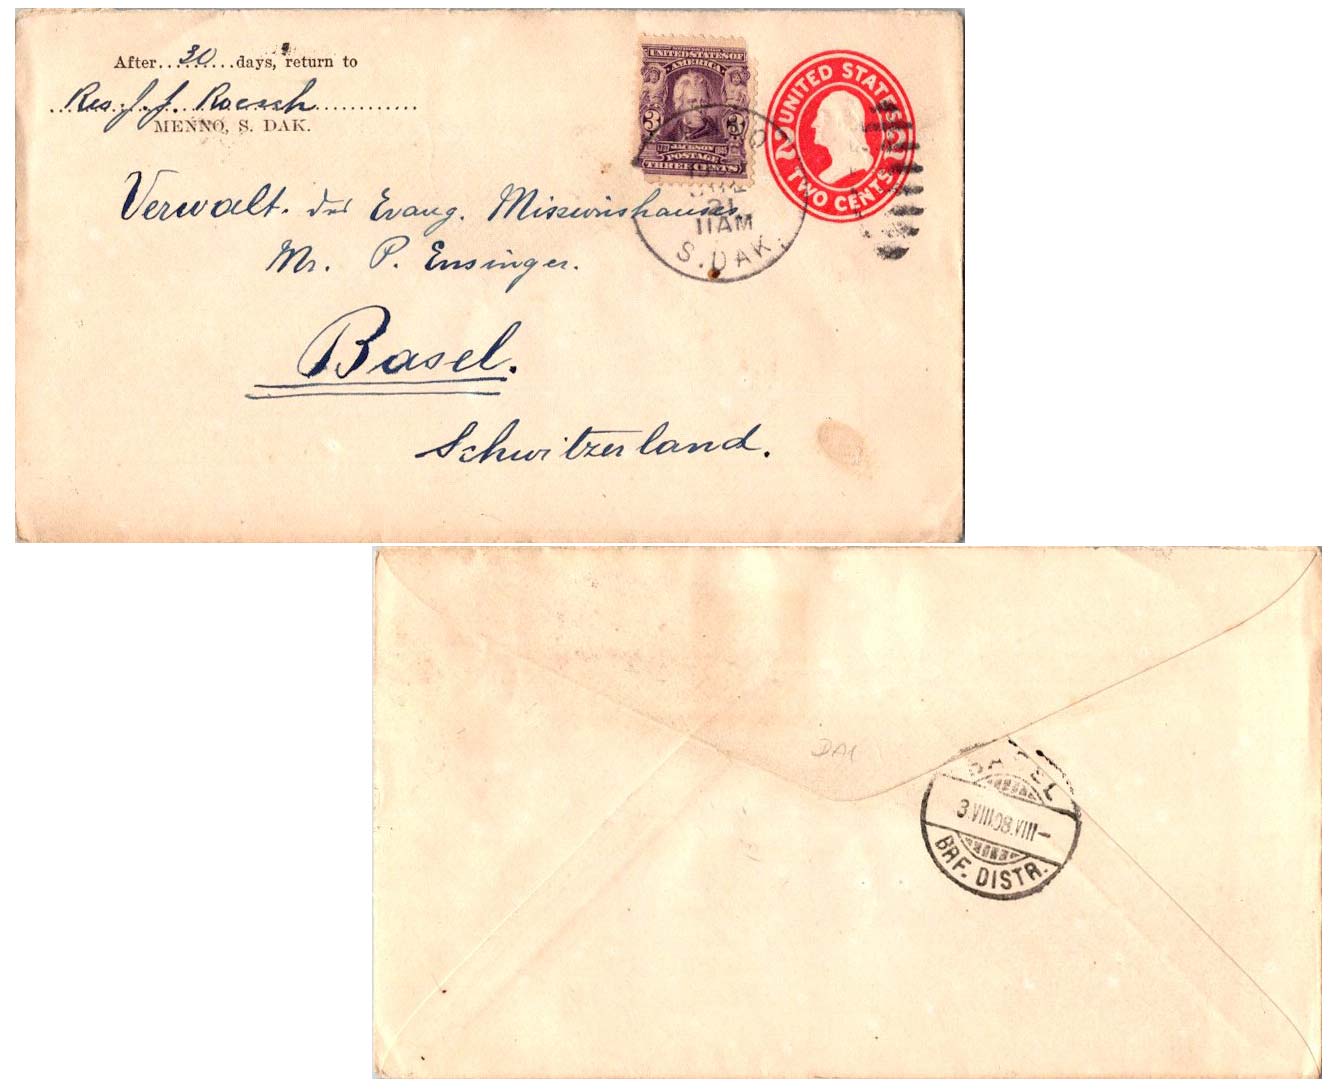 After..30....days, return to
Rev. J. J. Roesch
MENNO, S. DAK.
UNITED STATES OF
AMERICA
3 3
JACKSON
POSTAGE
THREE CENTS
UNITED STATES
2 2
TWO CENTS
21
11AM
S. DAK.
Verwalt. des Evang. Missionshauses
Mr. P. Ensinger.
Basel.
Schwitzerland.
DA1
BASEL
3.VIII.08.VIII–
BRF. DISTR.